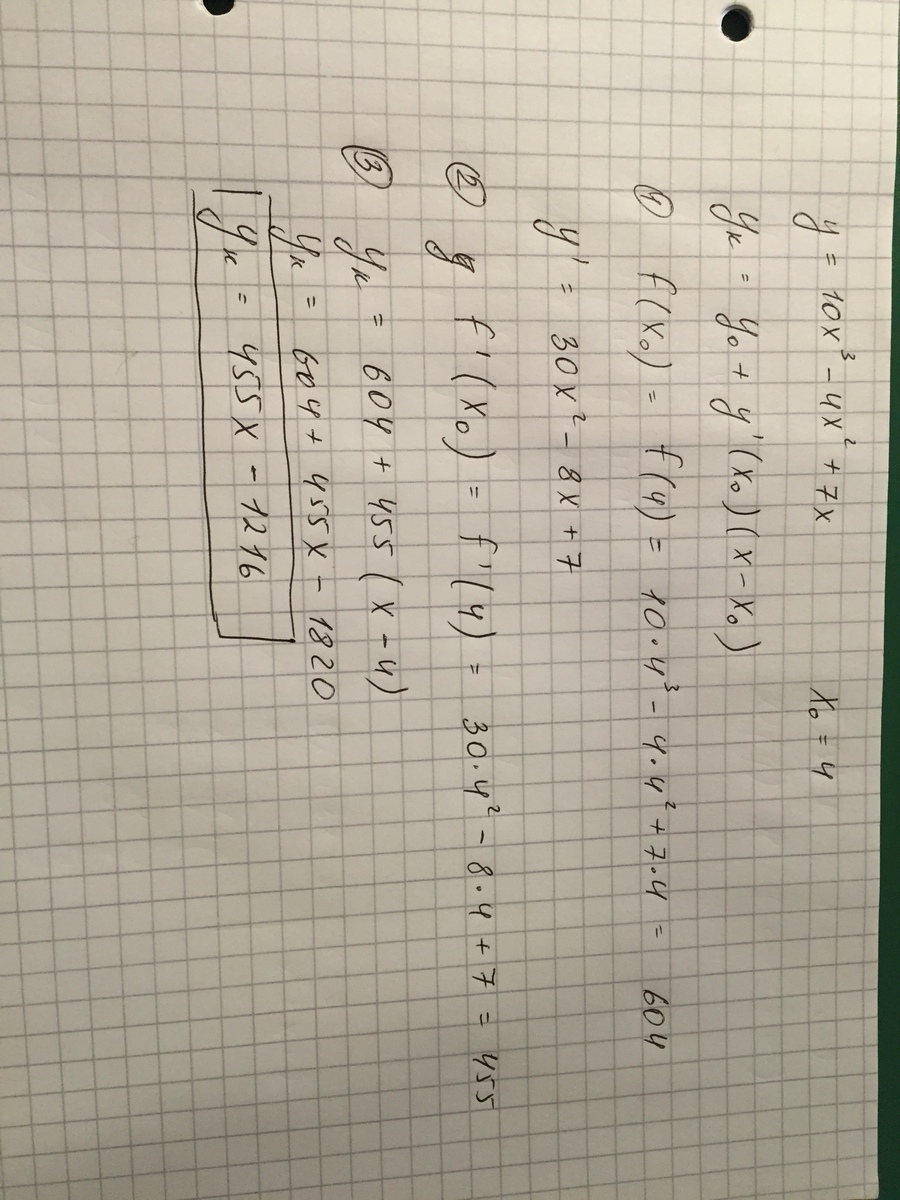 y = 10x³ - 4x² + 7x x₀ = 4
yк = y₀ + y'(x₀)(x - x₀)
① f(x₀) = f(4) = 10·4³ - 4·4² + 7·4 = 604
y' = 30x² - 8x + 7
② f'(x₀) = f'(4) = 30·4² - 8·4 + 7 = 455
③ yк = 604 + 455(x - 4)
yк = 604 + 455x - 1820
yк = 455x - 1216